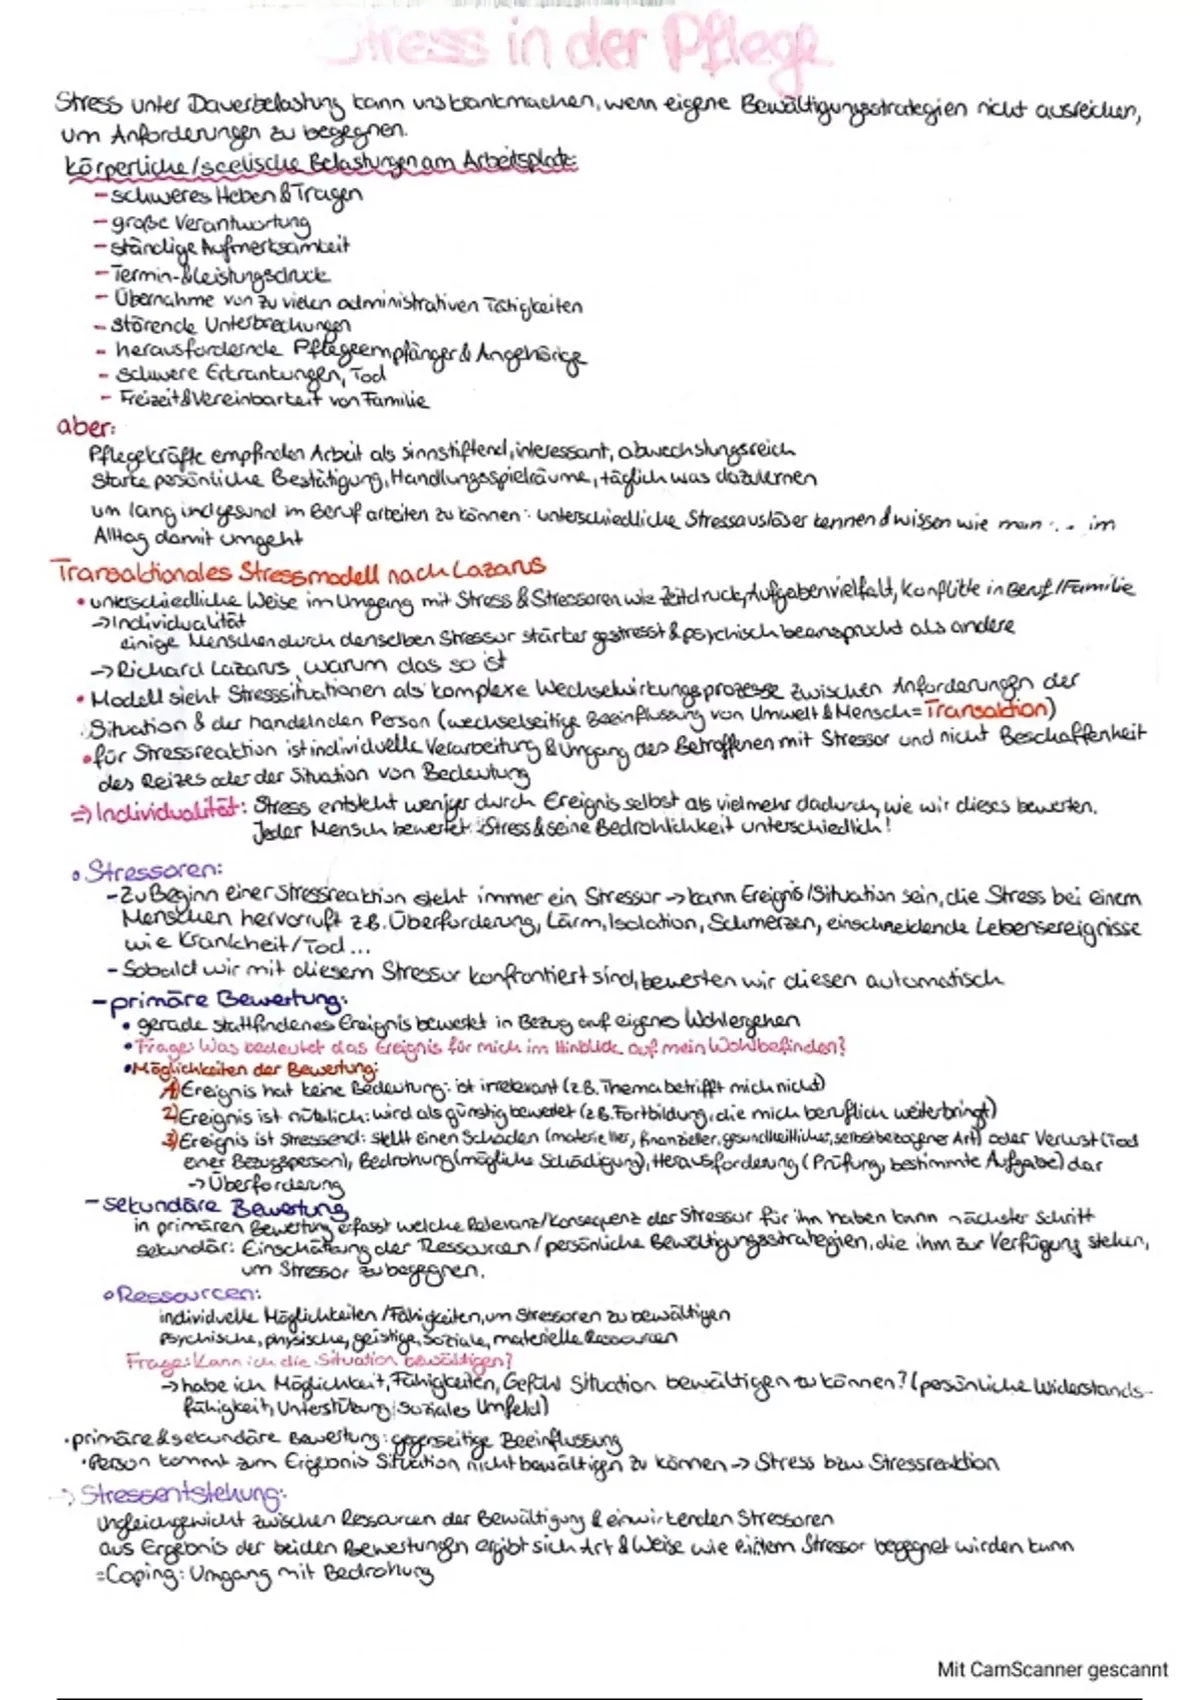 Stress in der Pflege
Stress unter Dauerbelastung kann uns krankmachen, wenn eigene Bewältigungsstrategien nicht ausreichen,
um Anforderungen zu begegnen.
körperliche/seelische Belastungen am Arbeitsplatz:
- schweres Heben & Tragen
- große Verantwortung
- ständige Aufmerksamkeit
- Termin-&Leistungsdruck
- Übernahme von zu vielen administrativen Tätigkeiten
- störende Unterbrechungen
- herausfordernde Pflegeempfänger & Angehörige
- schwere Erkrankungen, Tod
- Freizeit&Vereinbarkeit von Familie
aber:
Pflegekräfte empfinden Arbeit als sinnstiftend, interessant, abwechslungsreich
starke persönliche Bestätigung, Handlungsspielräume, täglich was dazulernen
um lang indgesund im Beruf arbeiten zu können: unterschiedliche Stressauslöser kennen & wissen wie man ... im
Alltag damit umgeht
Transaktionales Stressmodell nach Lazarus
• unterschiedliche Weise im Umgang mit Stress & Stressoren wie Zeitdruck, Aufgabenvielfalt, Konflikte in Beruf/Familie
→Individualität
einige Menschen durch denselben Stressor stärker gestresst & psychisch beansprucht als andere
→Richard Lazarus, warum das so ist
• Modell sieht Stresssituationen als komplexe Wechselwirkungsprozesse zwischen Anforderungen der
Situation & der handelnden Person (wechselseitige Beeinflussung von Umwelt & Mensch = Transaktion)
• für Stressreaktion ist individuelle Verarbeitung & Umgang des Betroffenen mit Stressor und nicht Beschaffenheit
des Reizes oder der Situation von Bedeutung
⇒ Individualität: Stress entsteht weniger durch Ereignis selbst als vielmehr dadurch, wie wir dieses bewerten.
Jeder Mensch bewertet Stress & seine Bedrohlichkeit unterschiedlich!
• Stressoren:
- Zu Beginn einer Stressreaktion steht immer ein Stressor → kann Ereignis/Situation sein, die Stress bei einem
Menschen hervorruft z.B. Überforderung, Lärm, Isolation, Schmerzen, einschneidende Lebensereignisse
wie Krankheit/Tod...
- Sobald wir mit diesem Stressor konfrontiert sind, bewerten wir diesen automatisch
- primäre Bewertung:
• gerade stattfindenes Ereignis bewertet in Bezug auf eigenes Wohlergehen
• Frage: Was bedeutet das Ereignis für mich im Hinblick auf mein Wohlbefinden?
• Möglichkeiten der Bewertung:
1) Ereignis hat keine Bedeutung: ist irrelevant (z.B. Thema betrifft mich nicht)
2) Ereignis ist nützlich: wird als günstig bewertet (z.B. Fortbildung, die mich beruflich weiterbringt)
3) Ereignis ist stressend: stellt einen Schaden (materieller, finanzieller, gesundheitlicher, selbstbezogener Art) oder Verlust (Tod
einer Bezugsperson), Bedrohung (mögliche Schädigung), Herausforderung (Prüfung, bestimmte Aufgabe) dar
→ Überforderung
- sekundäre Bewertung
in primären Bewertung erfasst welche Relevanz/Konsequenz der Stressor für ihn haben kann nächster Schritt
sekundär: Einschätzung der Ressourcen / persönliche Bewältigungsstrategien, die ihm zur Verfügung stehen,
um Stressor zu begegnen.
• Ressourcen:
individuelle Möglichkeiten / Fähigkeiten, um Stressoren zu bewältigen
Psychische, physische, geistige, soziale, materielle Ressourcen
Frage: Kann ich die Situation bewältigen?
→ habe ich Möglichkeit, Fähigkeiten, Gefühl Situation bewältigen zu können? (persönliche Widerstands-
fähigkeit, Unterstützung, soziales Umfeld)
• primäre & sekundäre Bewertung: gegenseitige Beeinflussung
• Person kommt zum Ergebnis Situation nicht bewältigen zu können → Stress bzw Stressreaktion
→ Stressentstehung:
Ungleichgewicht zwischen Ressourcen der Bewältigung & einwirkenden Stressoren
aus Ergebnis der beiden Bewertungen ergibt sich Art & Weise wie einem Stressor begegnet wirden kann
= Coping: Umgang mit Bedrohung
Mit CamScanner gescannt